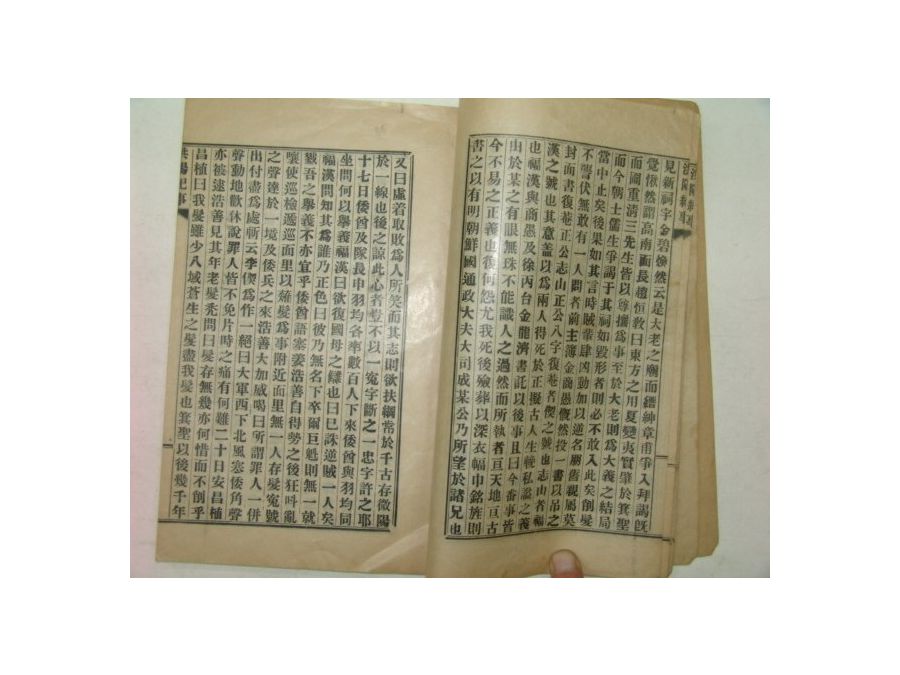 見新祠宇金碧煥然云是大老之廟而縉紳章甫爭入拜謁旣
覺愀然謂高南而長趙恒敎曰東方之用夏變夷實肇於箕聖
而圃重湂三先生皆以尊攘爲事至於大老則爲大義之結局
而今朝士儒生爭謁于其祠如毀形者則必不敢入此矣削髮
當中止矣後果如其言時賊輩肆凶動加以逆名朋舊親屬莫
不讋伏無敢有一人問者前主簿金商悳慨然投一書以吊之
封面書復菴正公志山正公八字復菴者偰之號也志山者福
漢之號也其意盖以爲兩人得死於正擬古人生輓私謚之義
也福漢與商悳及徐丙台金龍濟書託以後事且曰今番事皆
由於某之有眼無珠不能識人之過然而所執者亘天地亘古
今不易之正義也復何怨尤我死後殮葬以深衣幅巾銘旌則
書之以有明朝鮮國通政大夫大司成某公乃所望於諸兄也
又曰處着取敗爲人所笑而其志則欲扶綱常於千古存微陽
於一線也後之諒此心者豈不以一寃字斷之一忠字許之耶
十七日倭酋及隊長申羽均各率數百人下來倭酋與羽均同
坐問何以擧義福漢曰欲復國母之讎也曰已誅逆賊一人矣
福漢問知其爲誰乃正色曰彼乃無名下卒爾巨魁則無一就
戮吾之擧義不亦宜乎倭酋語塞姜浩善自得勢之後狂叫亂
嚷使巡檢遍巡面里以薙髮爲事附近面里無一人存髮寃號
之聲達於一境及倭兵之來浩善大加威喝曰所謂罪人一併
出付盡爲處斬云李偰爲作一絕曰大軍西下北風塞倭角聲
聲動地歡休說罪人皆不免片時之痛有何難二十日安昌植
亦被逮浩善見其年老髮禿問曰髮存無幾亦何惜而不削乎
昌植曰我髮雖少八域蒼生之髮盡我髮也箕聖以後幾千年
洪陽紀事